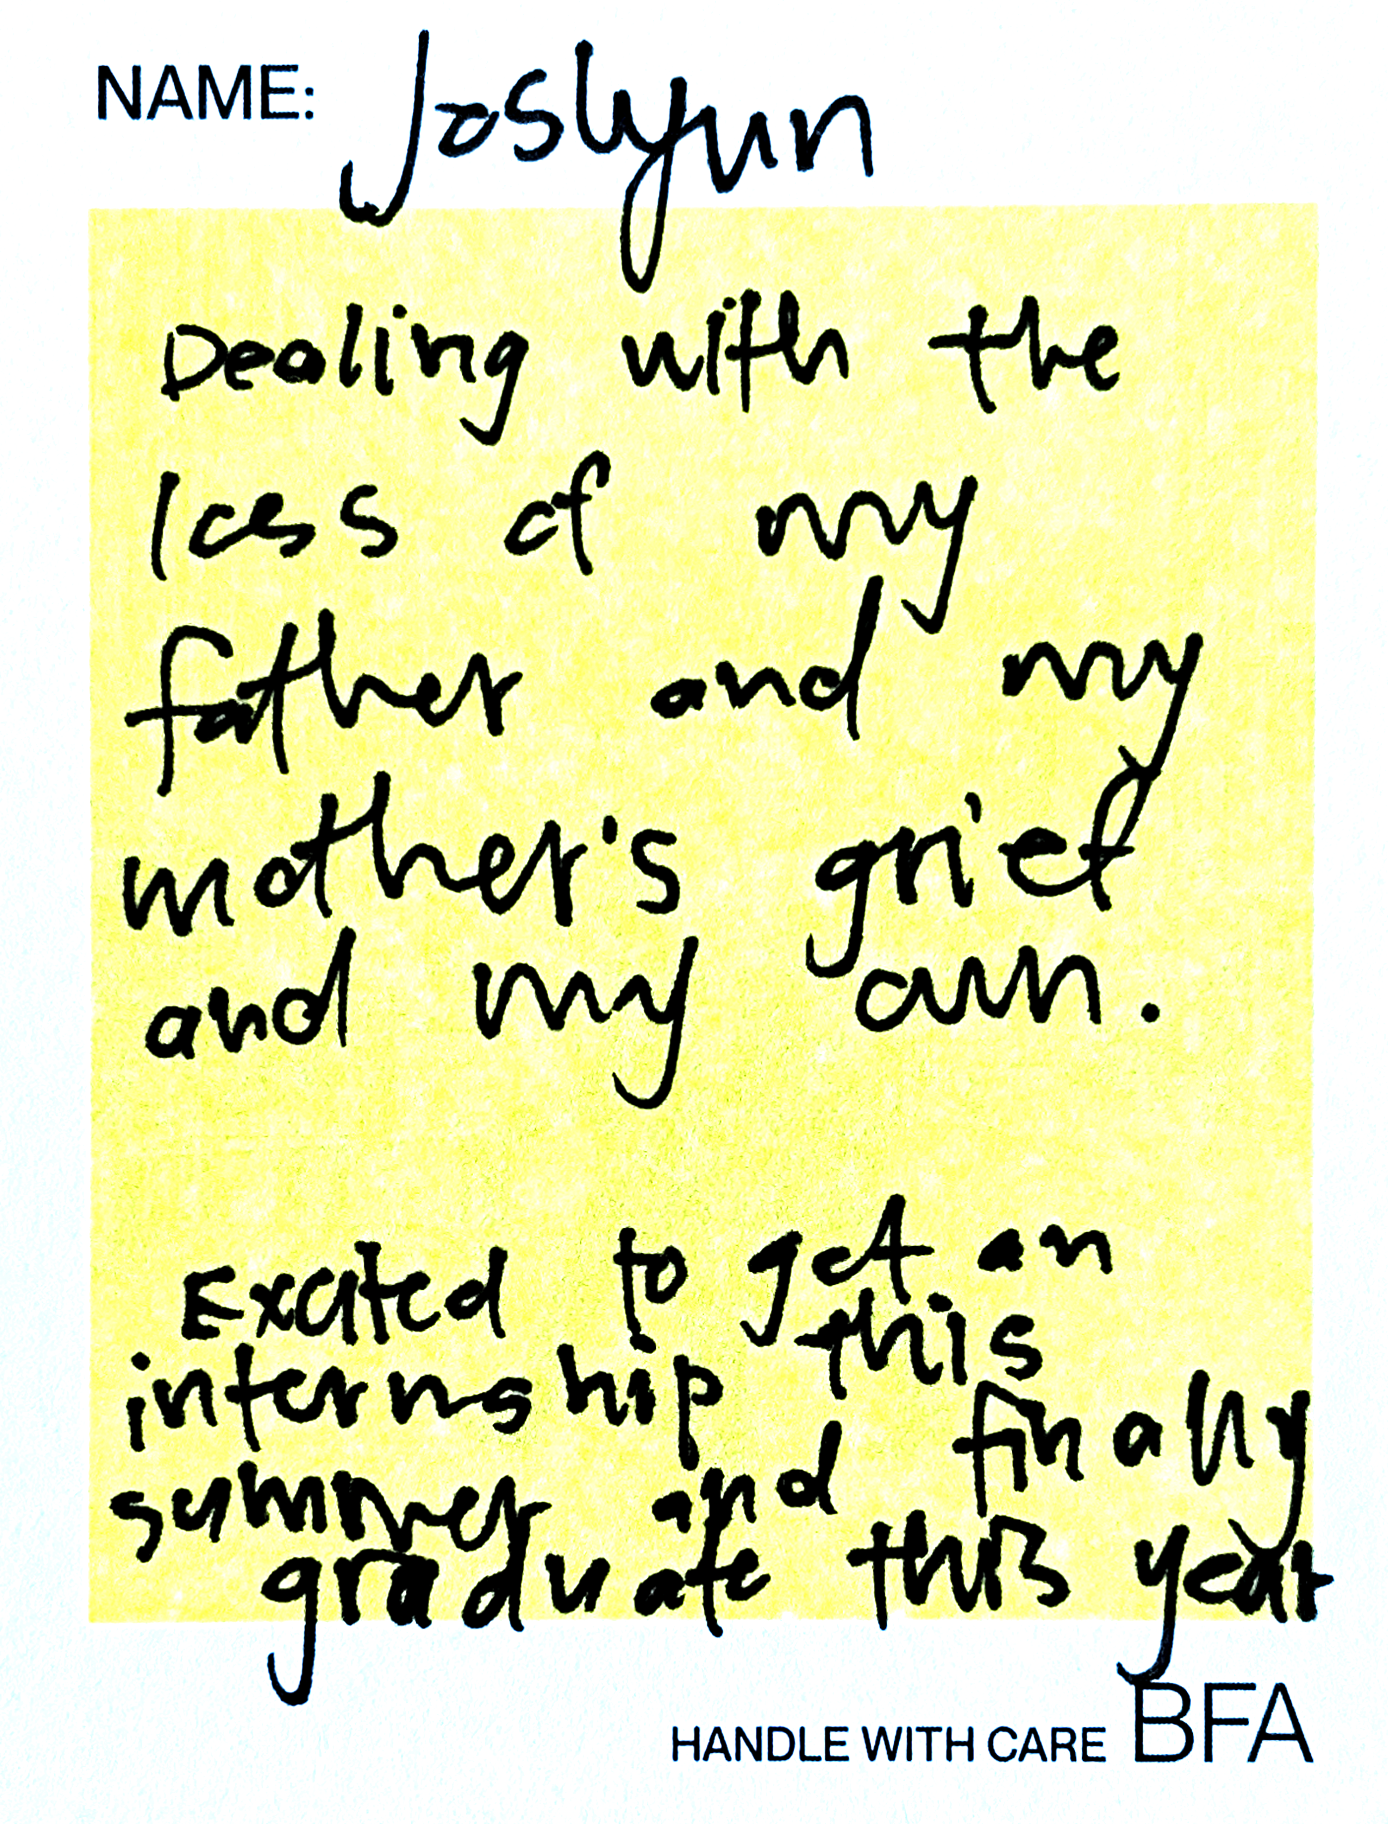 NAME: Joslyun
Dealing with the
loss of my
father and my
mother's grief
and my own.
Excited to get an
internship this
summer and finally
graduate this year
HANDLE WITH CARE BFA